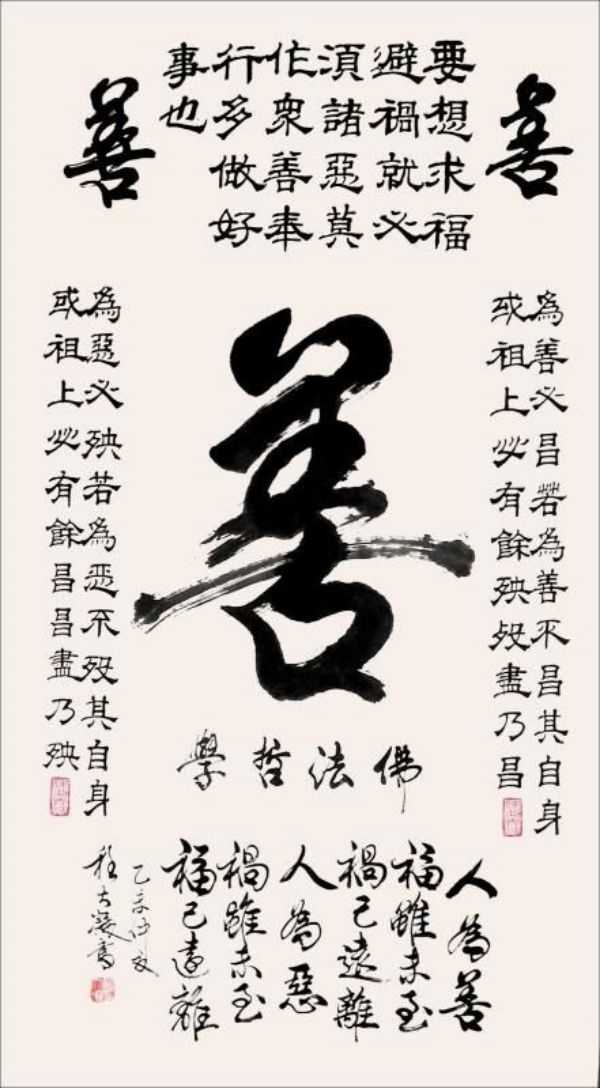 善
要想求福
避禍就必
湏諸惡莫
作衆善奉
行多做好
事也
善
為善必昌若為善不昌其自身
或祖上必有餘殃殃盡乃昌
善
為惡必殃若為惡不殃其自身
或祖上必有餘昌昌盡乃殃
佛法哲學
人為善
福雖未至
禍已遠離
人為惡
禍雖未至
福已遠離